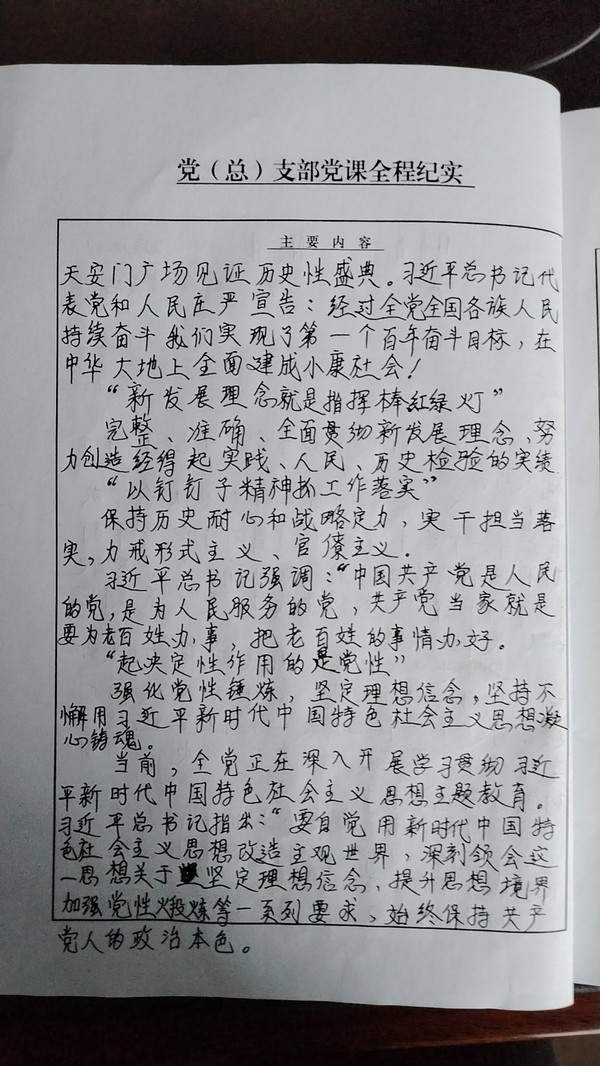 党（总）支部党课全程纪实
主要内容
天安门广场见证历史性盛典。习近平总书记代
表党和人民庄严宣告：经过全党全国各族人民
持续奋斗我们实现了第一个百年奋斗目标，在
中华大地上全面建成小康社会！
“新发展理念就是指挥棒红绿灯”
完整、准确、全面贯彻新发展理念、努
力创造经得起实践、人民、历史检验的实绩
“以钉钉子精神抓工作落实”
保持历史耐心和战略定力，实干担当落
实，力戒形式主义、官僚主义.
习近平总书记强调：“中国共产党是人民
的党，是为人民服务的党，共产党当家就是
要为老百姓办事，把老百姓的事情办好。
“起决定性作用的是党性”
强化党性锤炼，坚定理想信念，坚持不
懈用习近平新时代中国特色社会主义思想凝
心铸魂。
当前，全党正在深入开展学习贯彻习近
平新时代中国特色社会主义思想主题教育。
习近平总书记指出：“要自觉用新时代中国特
色社会主义思想改造主观世界，深刻领会这
一思想关于坚定理想信念、提升思想境界
加强党性煅炼等一系列要求，始终保持共产
党人的政治本色。